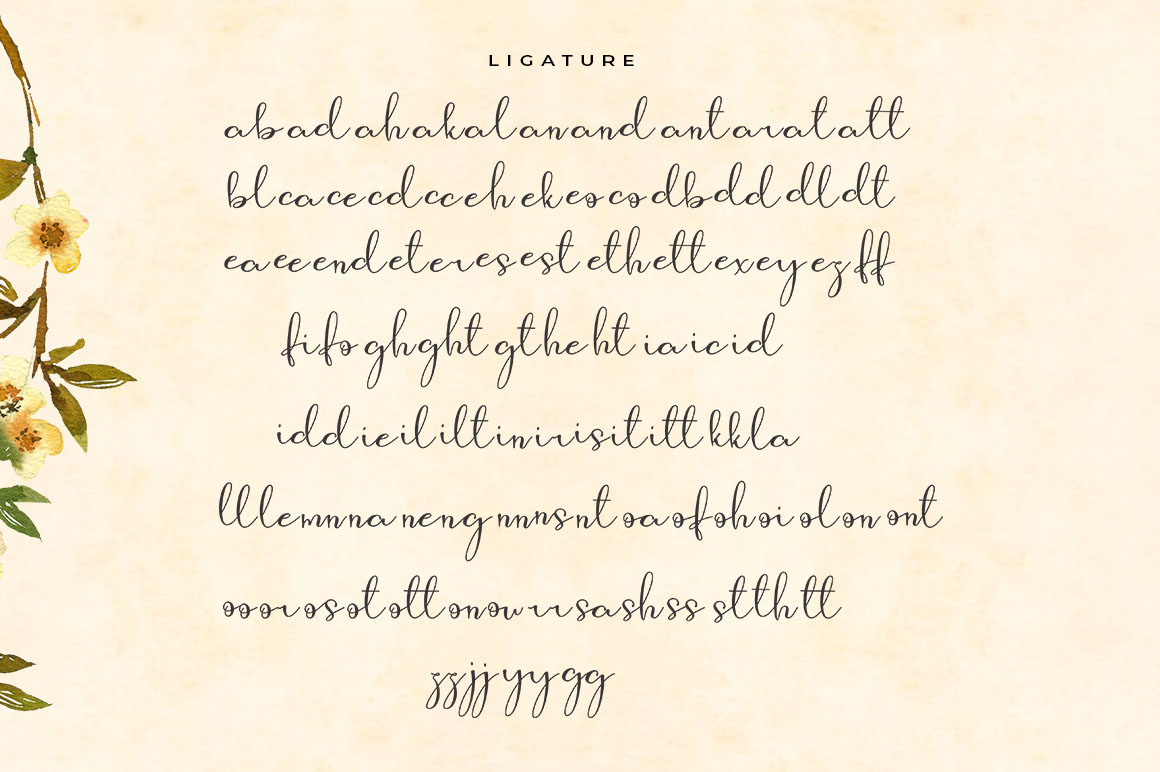 LIGATURE
ab ad ah ak al an and ant ar at att
bl ca ce cd cc eh ek eo co db dd dl dt
ea ee end et er es est eth ett ex ey ez ff
fi fo gh ght gt he ht ia ic id
idd ie il ilt in ir is it itt kk la
ll le mn na ne ng nn ns nt oa of oh oi ol on ont
oo or os ot ott on ow rr sa sh ss st th tt
zz jj yy gg